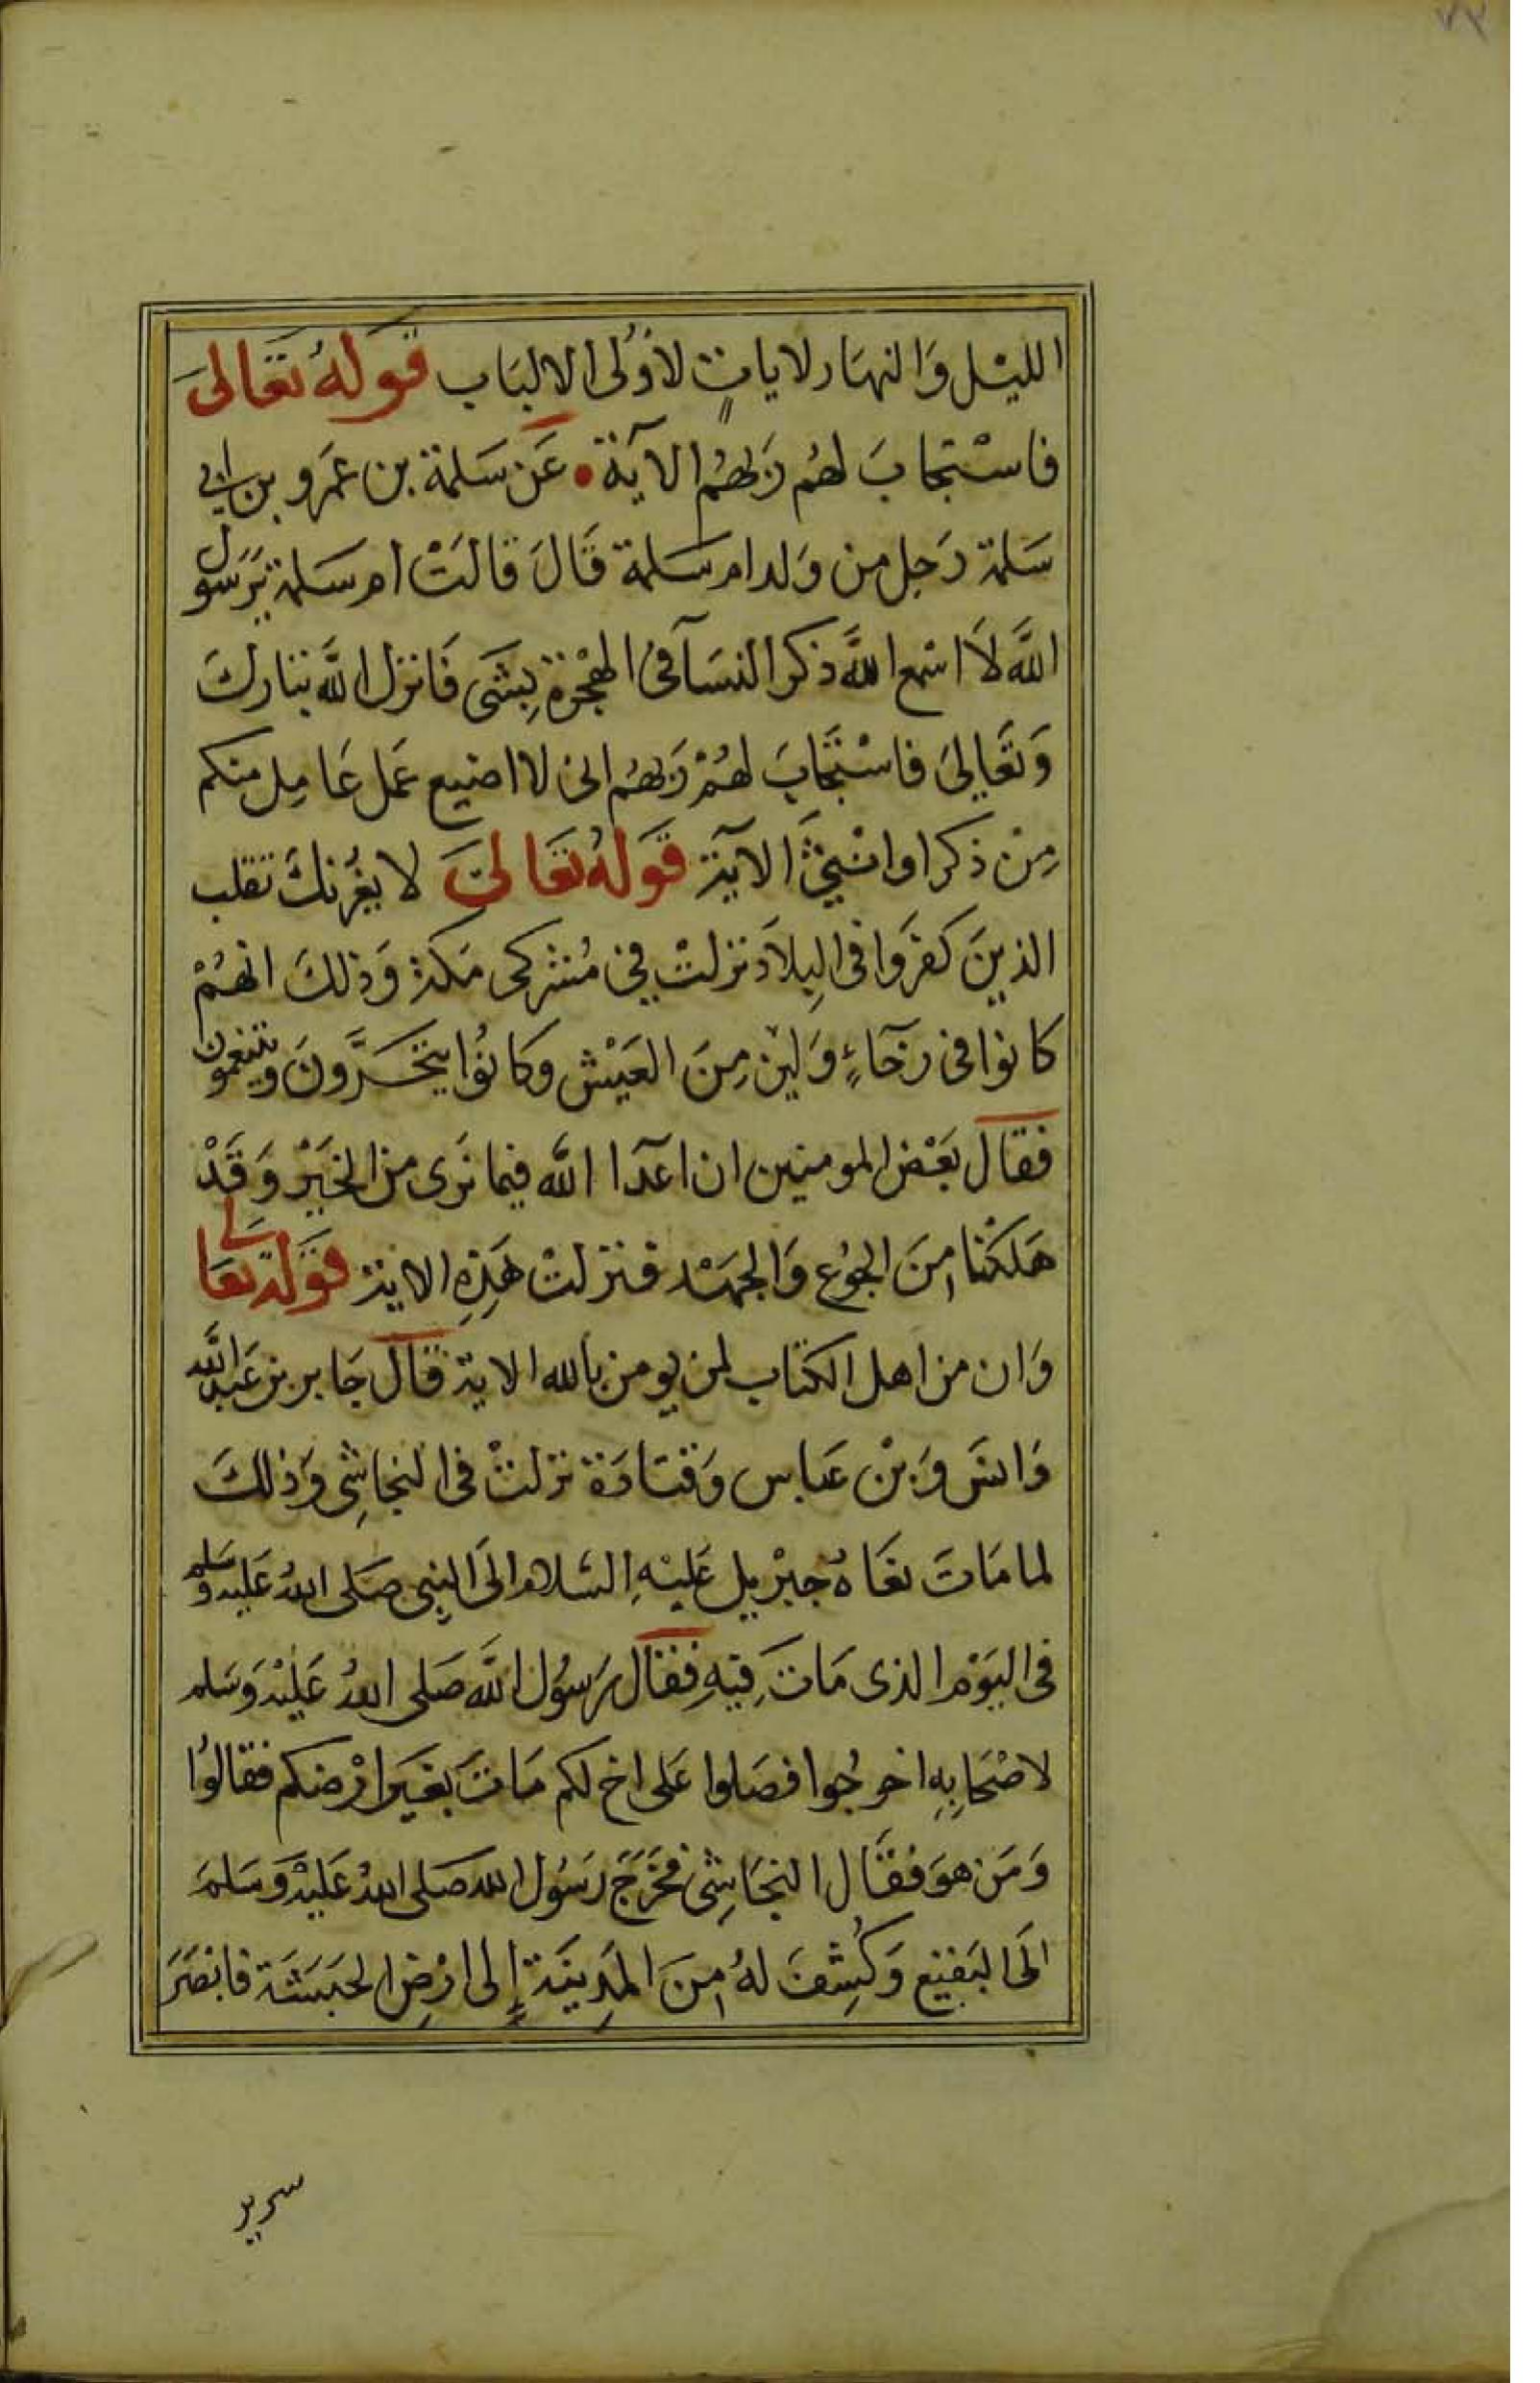 ٧٣
الليْل وَالنهَار لاياتٍ لأوُلى الالبَاب قَولهُ تعَالىَ
فاسْتجابَ لهُم رَبهُم الآيَة عَن سَلمة بن عَمرو بن ابي
سَلمة رَجل من وَلد ام سَلمة قَالَ قالتْ ام سَلمة يَرسَول
اللَّه لاَ اسْمع اللَّه ذكر النسَآ في الهجْرة بِشَى فَانزل اللَّه تبارك
وَتعَالىَ فاسْتجَابَ لهُمْ رَبهُم انى لا اضيع عَمل عَامِل منكم
مِنْ ذكر او انْثىَ الآيَة قَولهُ تعَالىَ لا يغُرنكَ تقلب
الذينَ كفرَوا فى البِلاَد نزلتْ في مُشركى مَكة وَذلكَ انهُمْ
كانوا فى رخَآءٍ وَلين مِنَ العَيْش وكانوُا يتجَرَّونَ ويتنعمون
فقال بعَْض المومنين ان اعدآ اللَّه فيما نَرى من الخيَرْ وَقَدْ
هَلكْنا مِنَ الجوُع وَالجهَْد فنزلتْ هَذِهِ الاية قَولهُ تعَالى
وَان من اهل الكتاب لمن يومن بالله الاية قال جَابر بن عَبد اللَّه
وَانسَ وَبْن عَباس وَقتادَة نزلتْ فى النجاشِى وَذلكَ
لما مَاتَ نعَاهُ جبْريل عَليْهِ السَلام الىَ النبِى صَلى اللهُ عَليه وَسَلم
فى اليَوْم الذى مَاتَ فيهِ فقال رَسوُل اللَّه صَلى اللهُ عَليْه وَسَلم
لاصْحَابِهِ اخرجُوا فصَلوا عَلى اخ لكم مَاتَ بغيَر ارْضكم فقالوُا
وَمَن هوَ فقَال النجَاشِى فخَرَجَ رَسوُل الله صَلى اللهُ عَليْه وَسَلمَ
الىَ البَقيع وَكشِفَ لهُ مِنَ المَدِينَة إِلى ارْضِ الحبَشَة فابصَرَ
سرير